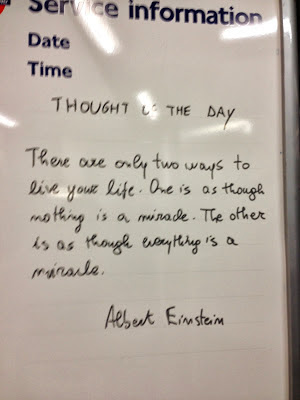 Service information
Date
Time
THOUGHT OF THE DAY
There are only two ways to
live your life. One is as though
nothing is a miracle. The other
is as though everything is a
miracle.
Albert Einstein